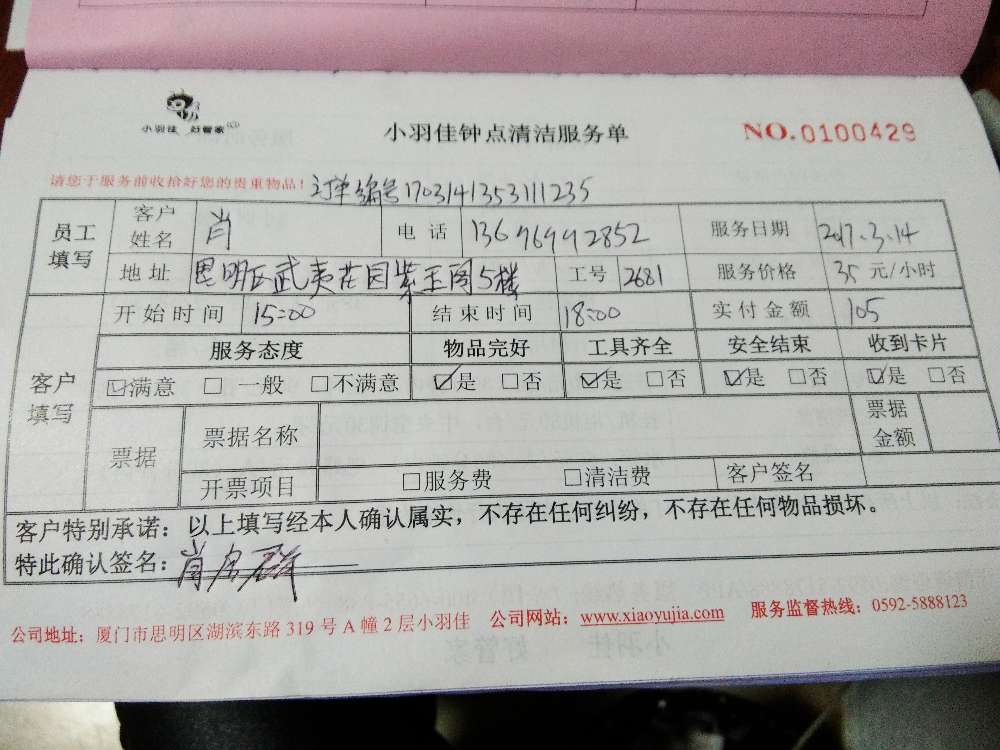 小羽佳 好管家
小羽佳钟点清洁服务单
NO.0100429
请您于服务前收拾好您的贵重物品! 订单编号170314135311235
员工填写 客户姓名 肖 电话 13696992852 服务日期 2017.3.14
地址 思明区武夷花园紫玉阁5楼 工号 2681 服务价格 35 元/小时
客户填写 开始时间 15:00 结束时间 18:00 实付金额 105
服务态度 物品完好 工具齐全 安全结束 收到卡片
☑满意 □一般 □不满意 ☑是 □否 ☑是 □否 ☑是 □否 ☑是 □否
票据 票据名称 票据金额
开票项目 □服务费 □清洁费 客户签名
客户特别承诺：以上填写经本人确认属实，不存在任何纠纷，不存在任何物品损坏。
特此确认签名：肖
公司地址：厦门市思明区湖滨东路 319 号 A 幢 2 层小羽佳 公司网站：www.xiaoyujia.com 服务监督热线：0592-5888123